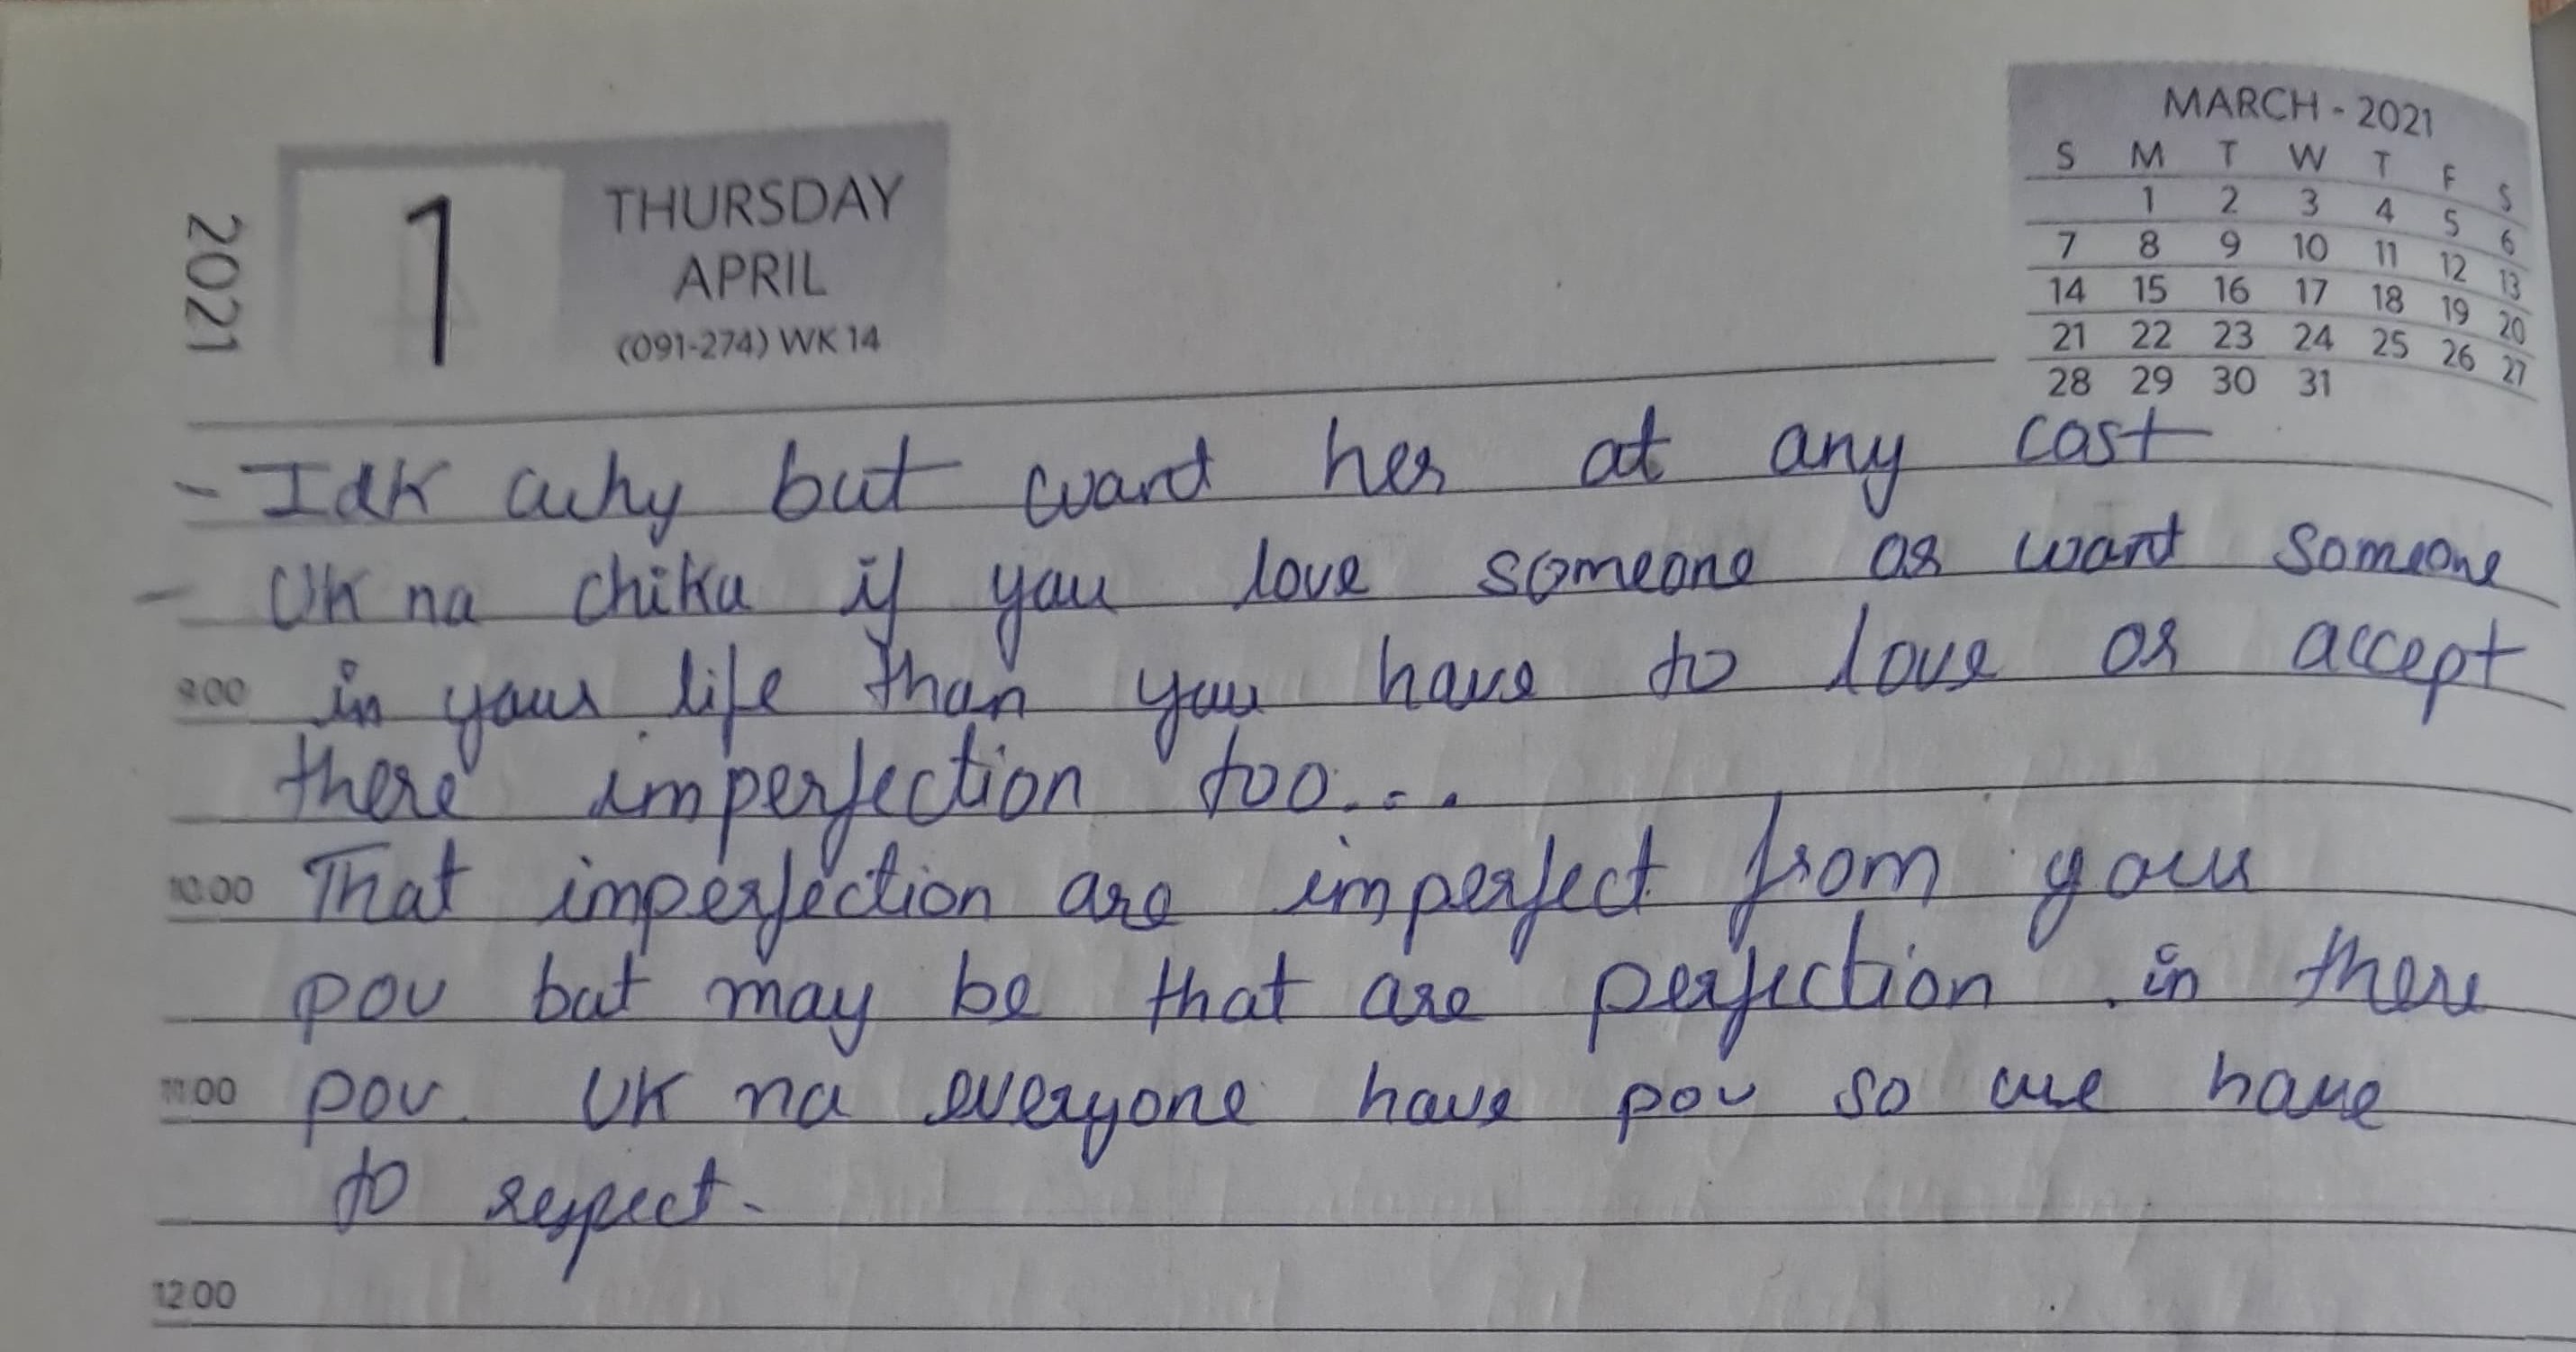 2021
1
THURSDAY
APRIL
(091-274) WK 14
MARCH - 2021
S M T W T F S
1 2 3 4 5 6
7 8 9 10 11 12 13
14 15 16 17 18 19 20
21 22 23 24 25 26 27
28 29 30 31
- Idk why but want her at any cost
- UK na chiku if you love someone or want someone
9:00 in your life than you have to love or accept
there imperfection too...
10:00 That imperfection are imperfect from your
pov but may be that are perfection in there
11:00 pov. UK na everyone have pov so we have
to respect.
12:00